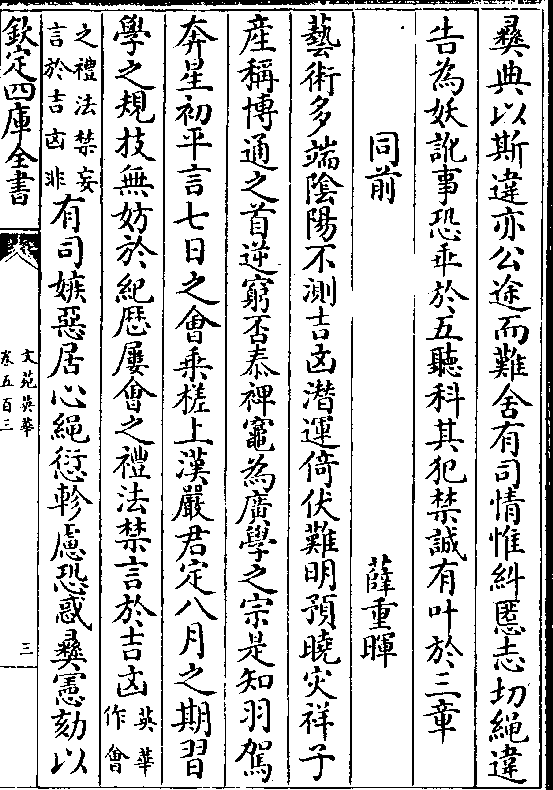 彞典以斯違亦公途而難舍有司情惟糾慝志切繩違
告為妖訛事恐乖於五聽科其犯禁誠有叶於三章
同前 薛重暉
藝術多端陰陽不測吉凶潛運倚伏難明預曉灾祥子
産稱博通之首逆窮否泰裨竈為廣學之宗是知羽駕
奔星初平言七日之會乗槎上漢嚴君定八月之期習
學之規技無妨於紀厯屢會之禮法禁言於吉凶英華作會
之禮法禁妄言於吉凶非有司嫉惡居心繩愆軫慮恐惑彞憲劾以
欽定四庫全書
文苑英華
卷五百三
三